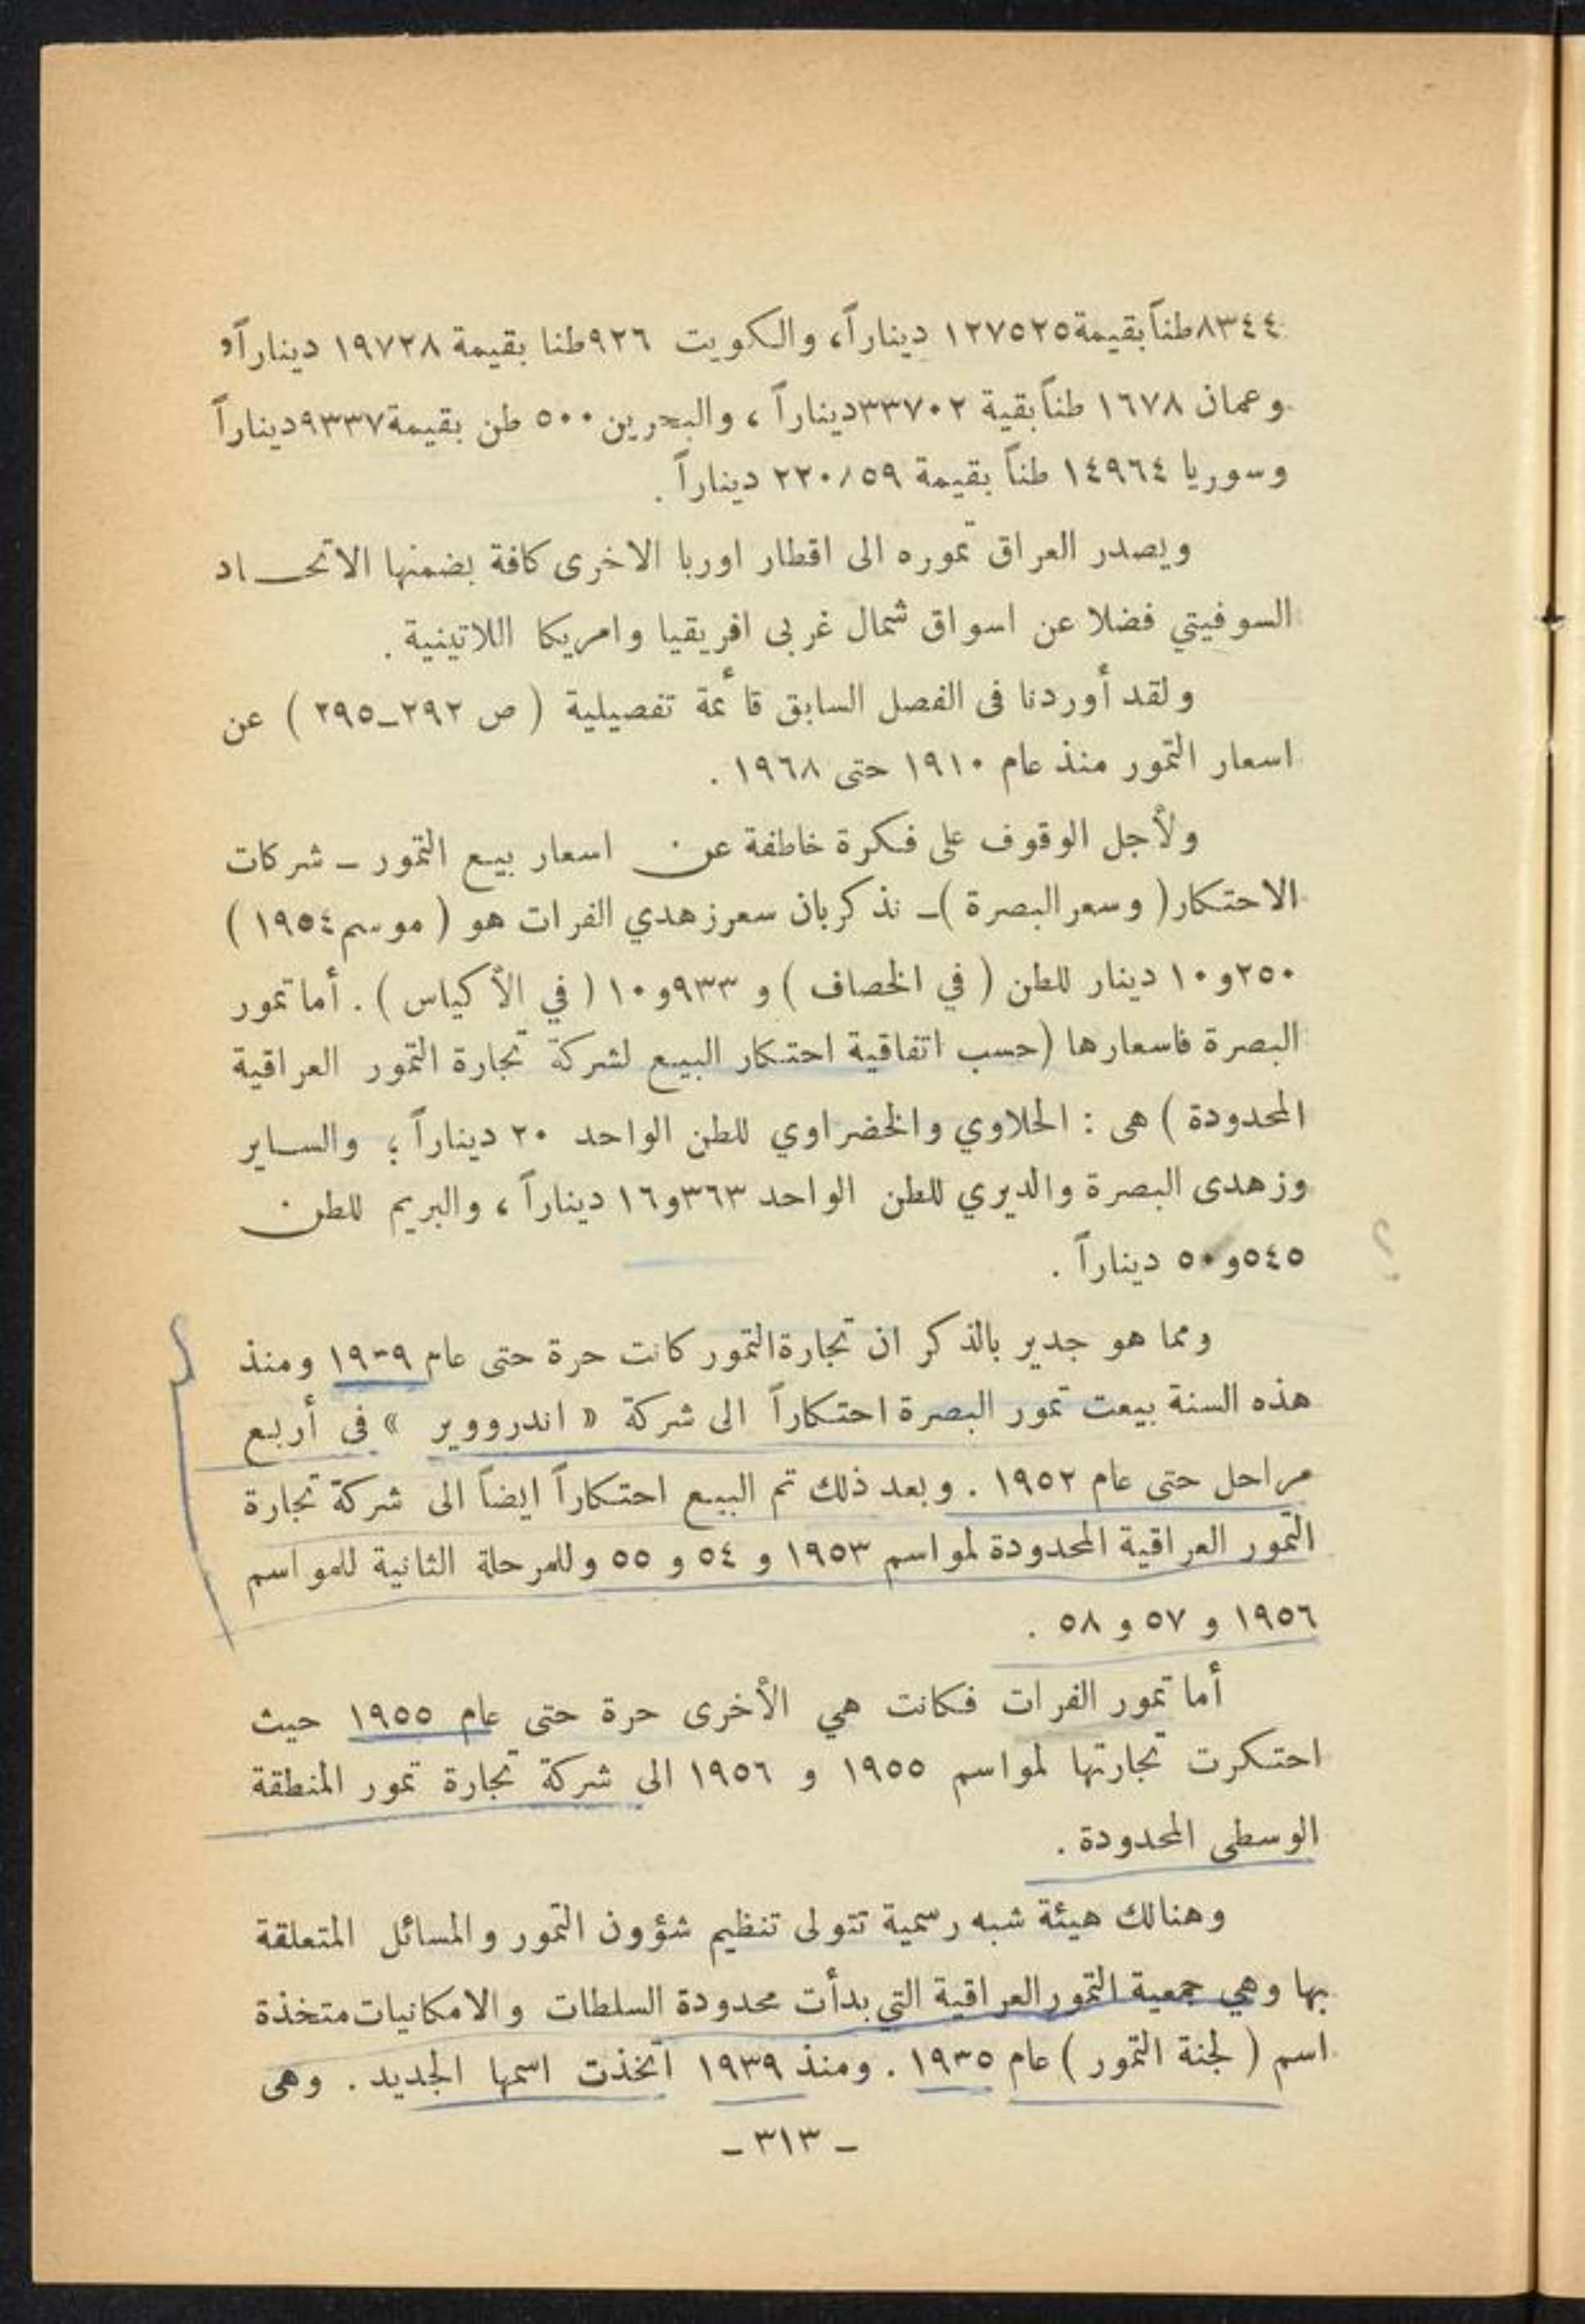 ٨٣٤٤طناً بقيمة ١٢٧٥٢٥ ديناراً، والكويت ٩٢٦طنا بقيمة ١٩٧٢٨ ديناراًو
وعمان ١٦٧٨ طناً بقية ٣٣٧٠٢ديناراً ، والبحرين ٥٠٠ طن بقيمة ٩٣٣٧ديناراً
وسوريا ١٤٩٦٤ طناً بقيمة ديناراً .
ويصدر العراق تموره الى اقطار اوربا الاخرى كافة بضمنها الاتحـــاد
السوفيتي فضلا عن اسواق شمال غربى افريقيا وامريكا اللاتينية .
ولقد أوردنا فى الفصل السابق قائمة تفصيلية ( ص ٢٩٢ـ٢٩٥ ) عن
اسعار التمور منذ عام ١٩١٠ حتى ١٩٦٨ .
ولأجل الوقوف على فكرة خاطفة عن اسعار بيع التمور ـ شركات
الاحتكار( وسعر البصرة )ـ نذكر بان سعر زهدي الفرات هو ( موسم ١٩٥٤ )
٢٥٠و١٠ دينار للطن ( في الخصاف ) و ٩٣٣و١٠ ( في الأكياس ) . أما تمور
البصرة فاسعارها (حسب اتفاقية احتكار البيع لشركة تجارة التمور العراقية
المحدودة ) هى : الحلاوي والخضراوي للطن الواحد ٢٠ ديناراً ؛ والساير
وزهدى البصرة والديري للطن الواحد ٣٦٣و١٦ ديناراً ، والبريم للطن
٥٤٥و٥٠ ديناراً .
؟
ومما هو جدير بالذكر ان تجارة التمور كانت حرة حتى عام ومنذ
هذه السنة بيعت تمور البصرة احتكاراً الى شركة « اندروویر » فى أربع
مراحل حتى عام ١٩٥٢ . وبعد ذلك تم البيع احتكاراً ايضاً الى شركة تجارة
التمور العراقية المحدودة لمواسم ١٩٥٣ و ٥٤ و ٥٥ وللمرحلة الثانية للمواسم
١٩٥٦ و ٥٧ و ٥٨ .
أما تمور الفرات فكانت هي الأخرى حرة حتى عام ١٩٥٥ حيث
احتكرت تجارتها لمواسم ١٩٥٥ و ١٩٥٦ الى شركة تجارة تمور المنطقة
الوسطى المحدودة .
وهنالك هيئة شبه رسمية تتولى تنظيم شؤون التمور والمسائل المتعلقة
بها وهي جمعية التمور العراقية التي بدأت محدودة السلطات والامكانيات متخذة
اسم ( لجنة التمور ) عام ١٩٣٥ . ومنذ ١٩٣٩ اتخذت اسمها الجديد . وهى
ـ ٣١٣ ـ